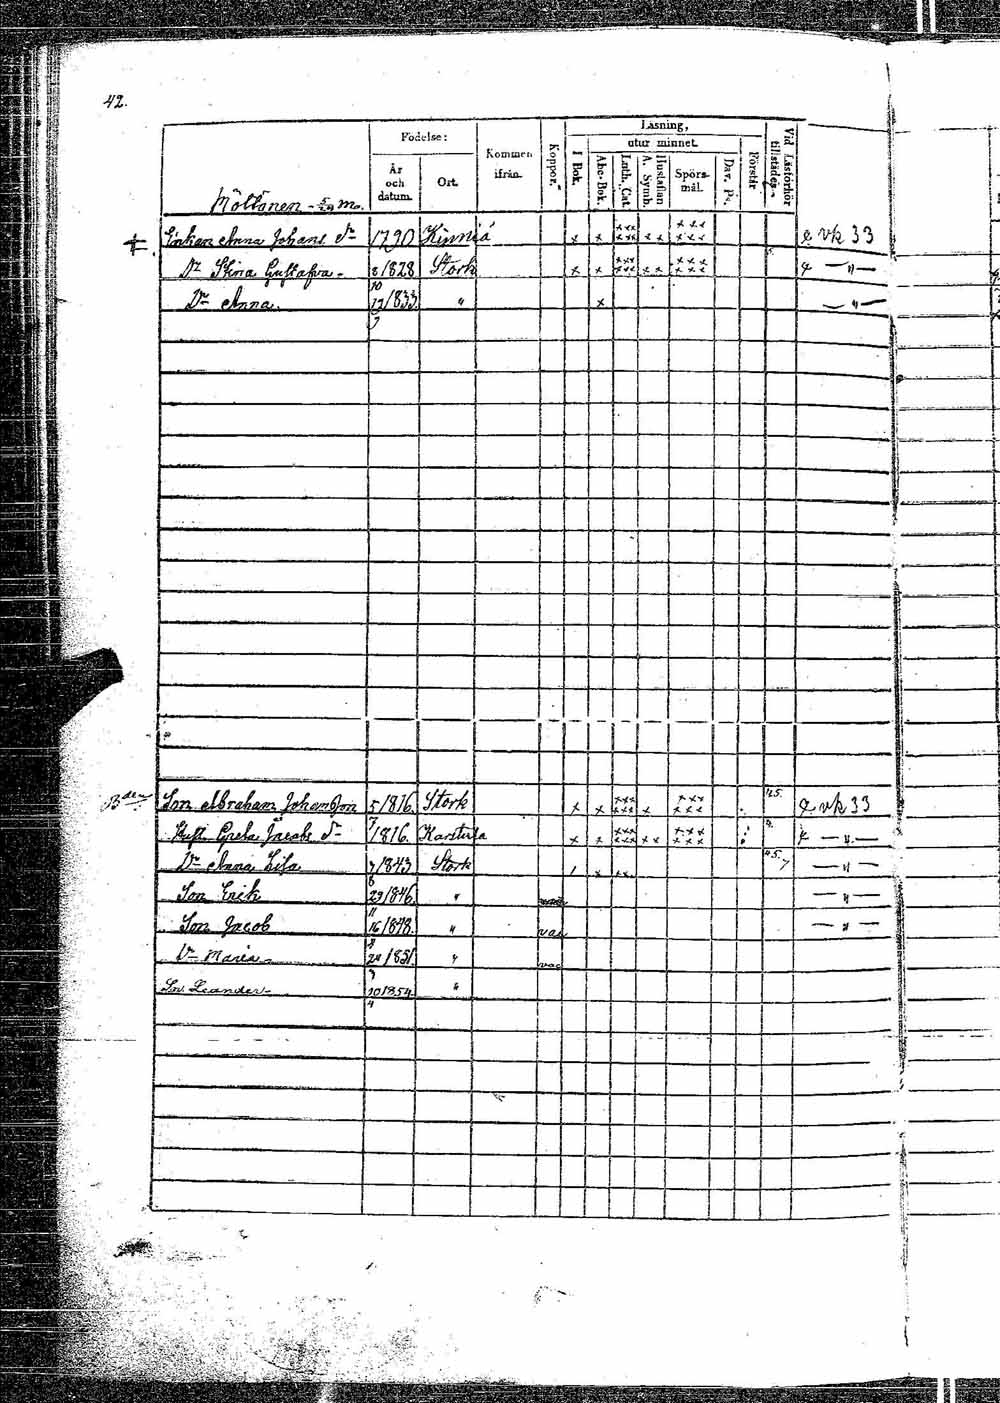 42.
Läsning,
Födelse: utur minnet.
År och datum. Ort. Kommen ifrån. Koppor. I Bok. Abc-Bok. Luth. Cat. A. Symb. Hustaflan Spörsmål. Dav. Ps. Förstår Vid Läsförhör tillstädes
Möttönen
Enkan Anna Johans dr 1790 Kinnia x x xxx xxx x x xxx xxx e vk 33
Dr Stina Gustafva 8/10 1828 Stork x x xxx xxx x x xxx xxx — " —
Dr Anna 12/9 1833 " x — " —
Bden Son Abraham Johansson 5/7 1816 Stork x x xxx xxx x xxx xxx 45. e vk 33
Hust. Greta Jacobs dr 1816. Karstula x x xxx xxx x x xxx xxx — " —
Dr Anna Lisa 7/8 1843 Stork / x x x 45. — " —
Son Erik 29/11 1846 " — " —
Son Jacob 16/8 1848. " vac — " —
Dr Maria 1851. " vac
Son Leander 10/4 1854 "